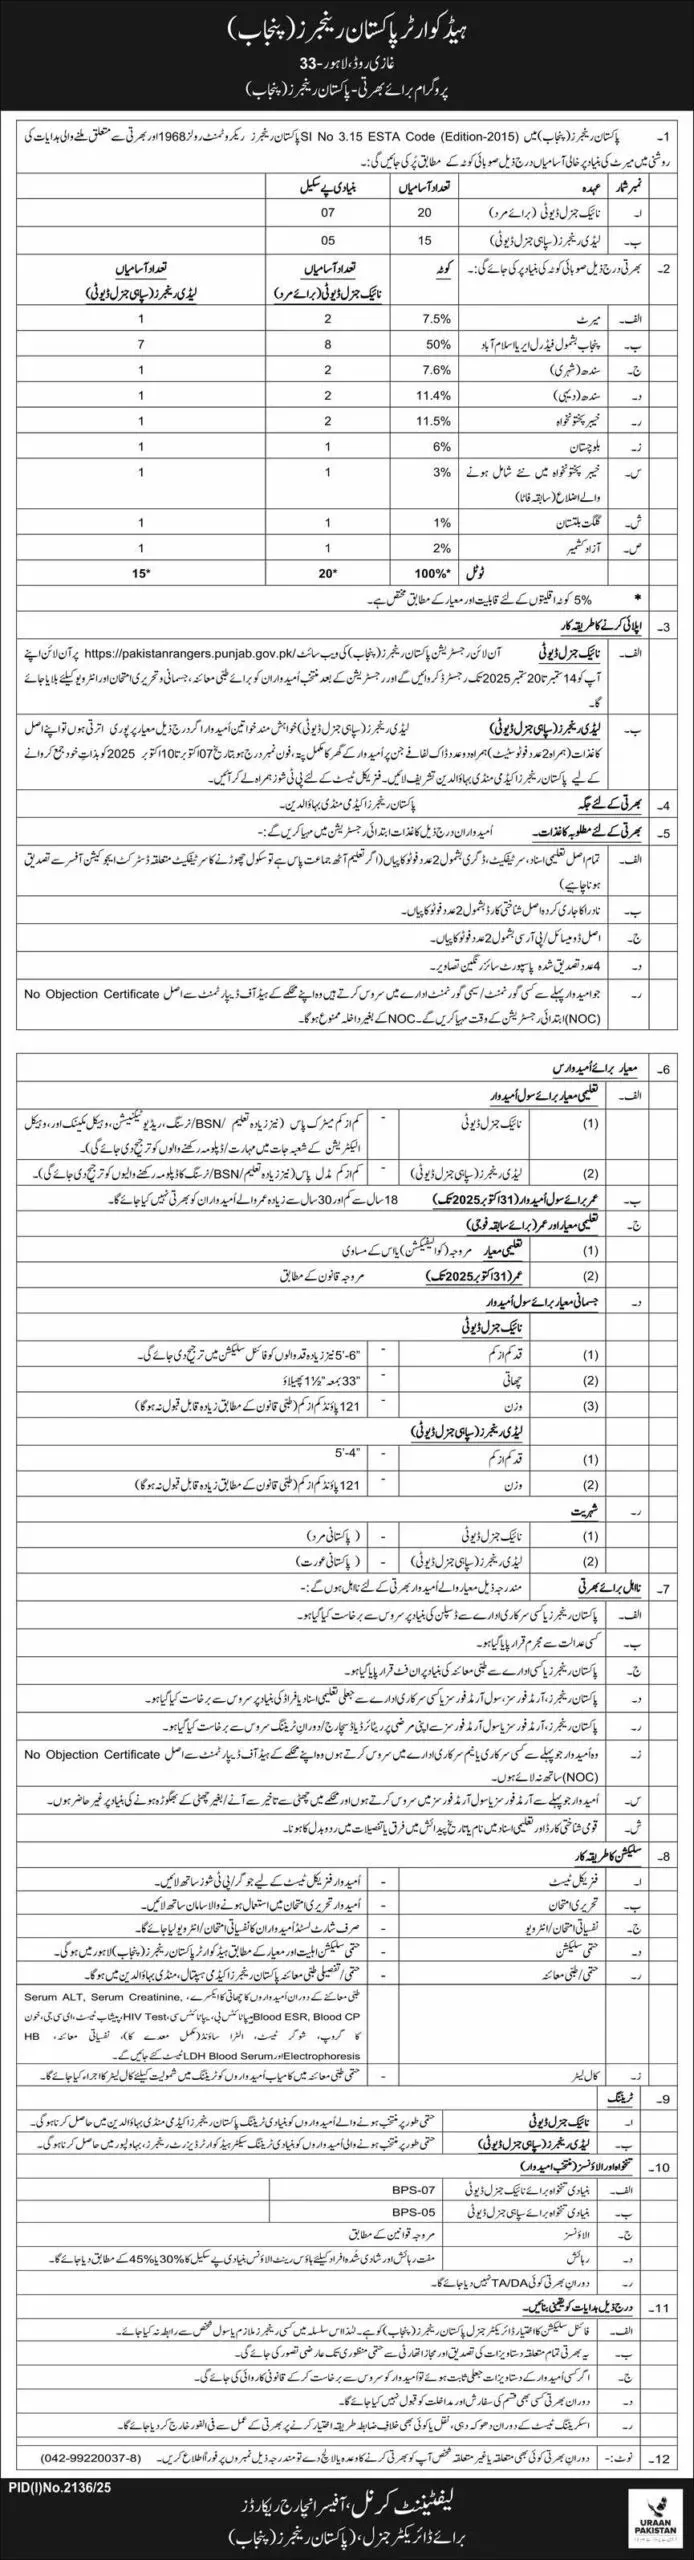 ہیڈ کوارٹر پاکستان رینجرز (پنجاب)
غازی روڈ، لاہور-33
پروگرام برائے بھرتی - پاکستان رینجرز (پنجاب)
1۔ پاکستان رینجرز (پنجاب) میں SI No 3.15 ESTA Code (Edition-2015) پاکستان رینجرز ریکروٹمنٹ رولز 1968 اور بھرتی سے متعلق ملنے والی ہدایات کی
روشنی میں میرٹ کی بنیاد پر خالی آسامیاں درج ذیل صوبائی کوٹہ کے مطابق پُر کی جائیں گی:۔
نمبر شمار عہدہ تعداد آسامیاں بنیادی پے سکیل
ا۔ نائیک جنرل ڈیوٹی (برائے مرد) 20 07
ب۔ لیڈی رینجرز (سپاہی جنرل ڈیوٹی) 15 05
2۔ بھرتی درج ذیل صوبائی کوٹہ کی بنیاد پر کی جائے گی:۔ کوٹہ تعداد آسامیاں تعداد آسامیاں
نائیک جنرل ڈیوٹی (برائے مرد) لیڈی رینجرز (سپاہی جنرل ڈیوٹی)
الف۔ میرٹ 7.5% 2 1
ب۔ پنجاب بشمول فیڈرل ایریا اسلام آباد 50% 8 7
ج۔ سندھ (شہری) 7.6% 2 1
د۔ سندھ (دیہی) 11.4% 2 1
ر۔ خیبر پختونخواہ 11.5% 2 1
ز۔ بلوچستان 6% 1 1
س۔ خیبر پختونخواہ میں نئے شامل ہونے 3% 1 1
والے اضلاع (سابقہ فاٹا)
ش۔ گلگت بلتستان 1% 1 1
ص۔ آزاد کشمیر 2% 1 1
ٹوٹل 100%* 20* 15*
* 5% کوٹہ اقلیتوں کے لئے قابلیت اور معیار کے مطابق مختص ہے۔
3۔ اپلائی کرنے کا طریقہ کار
الف۔ نائیک جنرل ڈیوٹی آن لائن رجسٹریشن پاکستان رینجرز (پنجاب) کی ویب سائٹ https://pakistanrangers.punjab.gov.pk/ پر آن لائن اپنے
آپ کو 14 ستمبر تا 20 ستمبر 2025 تک رجسٹرڈ کروائیں گے اور رجسٹریشن کے بعد منتخب امیدواران کو برائے طبی معائنہ، جسمانی و تحریری امتحان اور انٹرویو کیلئے بلایا جائے
گا۔
ب۔ لیڈی رینجرز (سپاہی جنرل ڈیوٹی) لیڈی رینجرز (سپاہی جنرل ڈیوٹی) خواہش مند خواتین اُمیدوار اگر درج ذیل معیار پر پوری اترتی ہوں تو اپنے اصل
کاغذات (ہمراہ 2 عدد فوٹوسٹیٹ) ہمراہ دو عدد ڈاک لفافے جن پر اُمیدوار کے گھر کا مکمل پتہ، فون نمبر درج ہو بتاریخ 07 اکتوبر تا 10 اکتوبر 2025 کو بذاتِ خود جمع کروانے
کے لیے پاکستان رینجرز اکیڈمی منڈی بہاؤالدین تشریف لائیں۔ فزیکل ٹیسٹ کے لئے پی ٹی شوز ہمراہ لے کر آئیں۔
4۔ بھرتی کے لئے جگہ پاکستان رینجرز اکیڈمی منڈی بہاؤالدین۔
5۔ بھرتی کے لئے مطلوبہ کاغذات۔ اُمیدواران درج ذیل کاغذات ابتدائی رجسٹریشن میں مہیا کریں گے:-
الف۔ تمام اصل تعلیمی اسناد، سرٹیفکیٹ، ڈگری بشمول 2 عدد فوٹو کاپیاں (اگر تعلیم آٹھ جماعت پاس ہے تو سکول چھوڑنے کا سرٹیفکیٹ متعلقہ ڈسٹرکٹ ایجوکیشن آفسر سے تصدیق
ہونا چاہیے)
ب۔ نادرا کا جاری کردہ اصل شناختی کارڈ بشمول 2 عدد فوٹو کاپیاں۔
ج۔ اصل ڈومیسائل/پی آر سی بشمول 2 عدد فوٹو کاپیاں۔
د۔ 4 عدد تصدیق شدہ پاسپورٹ سائز رنگین تصاویر۔
ر۔ جو امیدوار پہلے سے کسی گورنمنٹ/سیمی گورنمنٹ ادارے میں سروس کرتے ہیں وہ اپنے محکمے کے ہیڈ آف ڈیپارٹمنٹ سے اصل No Objection Certificate
(NOC) ابتدائی رجسٹریشن کے وقت مہیا کریں گے۔ NOC کے بغیر داخلہ ممنوع ہوگا۔
6۔ معیار برائے اُمیدوارس
الف۔ تعلیمی معیار برائے سول اُمیدوار
(1) نائیک جنرل ڈیوٹی - کم از کم میٹرک پاس (نیز زیادہ تعلیم /BSN/ نرسنگ، ریڈیو ٹیکنیشن، وہیکل مکینک اور، وہیکل
الیکٹریشن کے شعبہ جات میں مہارت/ڈپلومہ رکھنے والوں کو ترجیح دی جائے گی)۔
(2) لیڈی رینجرز (سپاہی جنرل ڈیوٹی) - کم از کم مڈل پاس (نیز زیادہ تعلیم/BSN/نرسنگ کا ڈپلومہ رکھنے والیوں کو ترجیح دی جائے گی)۔
ب۔ عمر برائے سول اُمیدوار (31 اکتوبر 2025 تک) 18 سال سے کم اور 30 سال سے زیادہ عمر والے اُمیدواران کو بھرتی نہیں کیا جائے گا۔
ج۔ تعلیمی معیار اور عمر (برائے سابقہ فوجی)
(1) تعلیمی معیار مروجہ (کوالیفیکیشن) یا اس کے مساوی
(2) عمر (31 اکتوبر 2025 تک) مروجہ قانون کے مطابق
د۔ جسمانی معیار برائے سول اُمیدوار
نائیک جنرل ڈیوٹی
(1) قد کم از کم - 5’-6” نیز زیادہ قد والوں کو فائنل سلیکشن میں ترجیح دی جائے گی۔
(2) چھاتی - 33” بمعہ 1½” پھیلاؤ
(3) وزن - 121 پاؤنڈ کم از کم (طبی قانون کے مطابق زیادہ قابل قبول نہ ہوگا)
لیڈی رینجرز (سپاہی جنرل ڈیوٹی)
(1) قد کم از کم - 5’-4”
(2) وزن - 121 پاؤنڈ کم از کم (طبی قانون کے مطابق زیادہ قابل قبول نہ ہوگا)
ر۔ شہریت
(1) نائیک جنرل ڈیوٹی - (پاکستانی مرد)
(2) لیڈی رینجرز (سپاہی جنرل ڈیوٹی) - (پاکستانی عورت)
7۔ نااہل برائے بھرتی مندرجہ ذیل معیار والے اُمیدوار بھرتی کے لئے نااہل ہوں گے:-
الف۔ پاکستان رینجرز یا کسی سرکاری ادارے سے ڈسپلن کی بنیاد پر سروس سے برخاست کیا گیا ہو۔
ب۔ کسی عدالت سے مجرم قرار پایا گیا ہو۔
ج۔ پاکستان رینجرز یا کسی ادارے سے طبی معائنہ کی بنیاد پر ان فٹ قرار پایا گیا ہو۔
د۔ پاکستان رینجرز، آرمڈ فورسز، سول آرمڈ فورسز یا کسی سرکاری ادارے سے جعلی تعلیمی اسناد یا فراڈ کی بنیاد پر سروس سے برخاست کیا گیا ہو۔
ر۔ پاکستان رینجرز، آرمڈ فورسز یا سول آرمڈ فورسز سے اپنی مرضی پر ریٹائرڈ یا ڈسچارج/دوران ٹریننگ سروس سے برخاست کیا گیا ہو۔
ز۔ وہ اُمیدوار جو پہلے سے کسی سرکاری یا نیم سرکاری ادارے میں سروس کرتے ہوں وہ اپنے محکمے کے ہیڈ آف ڈیپارٹمنٹ سے اصل No Objection Certificate
(NOC) ساتھ نہ لائے ہوں۔
س۔ اُمیدوار جو پہلے سے آرمڈ فورسز یا سول آرمڈ فورسز میں سروس کرتے ہوں اور محکمے میں چھٹی سے تاخیر سے آنے/بغیر چھٹی کے بھگوڑہ ہونے کی بنیاد پر غیر حاضر ہوں۔
ش۔ قومی شناختی کارڈ اور تعلیمی اسناد میں نام یا تاریخ پیدائش میں فرق یا تفصیلات میں ردوبدل کا ہونا۔
8۔ سلیکشن کا طریقہ کار
ا۔ فزیکل ٹیسٹ - اُمیدوار فزیکل ٹیسٹ کے لیے جوگر/پی ٹی شوز ساتھ لائیں۔
ب۔ تحریری امتحان - اُمیدوار تحریری امتحان میں استعمال ہونے والا سامان ساتھ لائیں۔
ج۔ نفسیاتی امتحان/انٹرویو - صرف شارٹ لسٹڈ اُمیدواران کا نفسیاتی امتحان/انٹرویو لیا جائے گا۔
د۔ حتمی سلیکشن - حتمی سلیکشن اہلیت اور معیار کے مطابق ہیڈ کوارٹر پاکستان رینجرز (پنجاب) لاہور میں ہوگی۔
ر۔ حتمی/طبی معائنہ - حتمی/تفصیلی طبی معائنہ پاکستان رینجرز اکیڈمی ہسپتال، منڈی بہاؤالدین میں ہوگا۔
طبی معائنے کے دوران اُمیدواروں کا چھاتی کا ایکسرے، Serum ALT, Serum Creatinine,
Blood ESR, Blood CP، ہیپاٹائٹس بی، ہیپاٹائٹس سی، HIV Test، پیشاب ٹیسٹ، ای سی جی، خون
کا گروپ، شوگر ٹیسٹ، الٹرا ساؤنڈ (مکمل معدے کا)، نفسیاتی معائنہ، HB
Electrophoresis اور LDH Blood Serum ٹیسٹ کئے جائیں گے۔
ز۔ کال لیٹر - حتمی طبی معائنہ میں کامیاب اُمیدواروں کو ٹریننگ میں شمولیت کیلئے کال لیٹر کا اجراء کیا جائے گا۔
9۔ ٹریننگ
ا۔ نائیک جنرل ڈیوٹی حتمی طور پر منتخب ہونے والے اُمیدواروں کو بنیادی ٹریننگ پاکستان رینجرز اکیڈمی منڈی بہاؤالدین میں حاصل کرنا ہوگی۔
ب۔ لیڈی رینجرز (سپاہی جنرل ڈیوٹی) حتمی طور پر منتخب ہونے والی اُمیدواروں کو بنیادی ٹریننگ سیکٹر ہیڈ کوارٹر ڈیزرٹ رینجرز، بہاولپور میں حاصل کرنا ہوگی۔
10۔ تنخواہ اور الاؤنسز (منتخب امیدوار)
الف۔ بنیادی تنخواہ برائے نائیک جنرل ڈیوٹی BPS-07
ب۔ بنیادی تنخواہ برائے سپاہی جنرل ڈیوٹی BPS-05
ج۔ الاؤنسز مروجہ قوانین کے مطابق
د۔ رہائش مفت رہائش اور شادی شدہ افراد کیلئے ہاؤس رینٹ الاؤنس بنیادی پے سکیل کا 30% یا 45% کے مطابق دیا جائے گا۔
ر۔ دوران بھرتی کوئی TA/DA نہیں دیا جائے گا۔
11۔ درج ذیل ہدایات کو یقینی بنائیں۔
الف۔ فائنل سلیکشن کا اختیار ڈائریکٹر جنرل پاکستان رینجرز (پنجاب) کو ہے۔ لہٰذا اس سلسلہ میں کسی رینجرز ملازم یا سول شخص سے رابطہ نہ کیا جائے۔
ب۔ یہ بھرتی تمام متعلقہ دستاویزات کی تصدیق اور مجاز اتھارٹی سے حتمی منظوری تک عارضی تصور کی جائے گی۔
ج۔ اگر کسی اُمیدوار کے دستاویزات جعلی ثابت ہوئے تو اُمیدوار کو سروس سے برخاست کر کے قانونی کاروائی کی جائے گی۔
د۔ دوران بھرتی کسی بھی قسم کی سفارش اور مداخلت کو قبول نہیں کیا جائے گا۔
ر۔ اسکریننگ ٹیسٹ کے دوران دھوکہ دہی، نقل یا کوئی بھی خلاف ضابطہ طریقہ اختیار کرنے پر بھرتی کے عمل سے فی الفور خارج کر دیا جائے گا۔
12۔ نوٹ:- دوران بھرتی کوئی بھی متعلقہ یا غیر متعلقہ شخص آپ کو بھرتی کرنے کا وعدہ یا لالچ دے تو مندرجہ ذیل نمبروں پر فوراً اطلاع کریں۔ (042-99220037-8)
PID(I)No.2136/25
لیفٹیننٹ کرنل، آفیسر انچارج ریکارڈز
برائے ڈائریکٹر جنرل، (پاکستان رینجرز (پنجاب)
URAAN
PAKISTAN